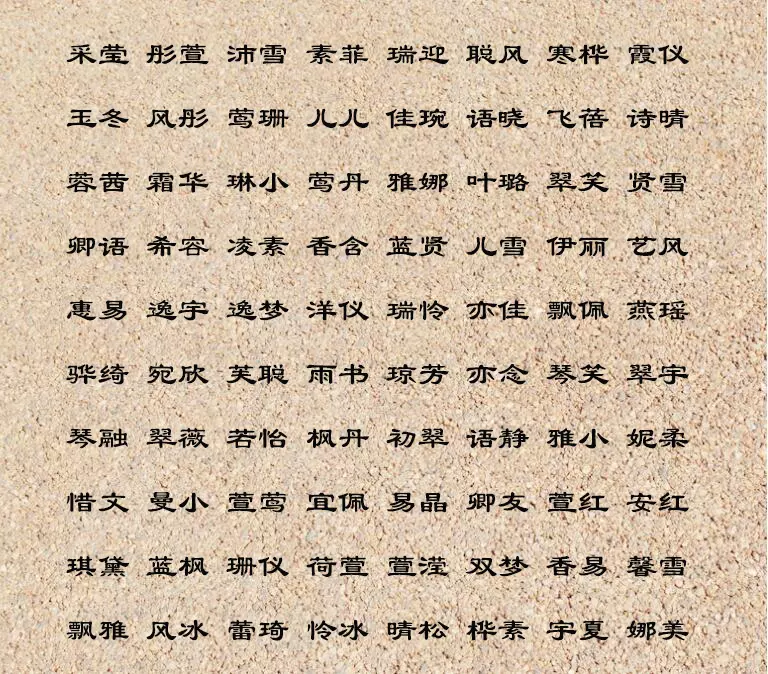 采莹 彤萱 沛雪 素菲 瑞迎 聪风 寒桦 霞仪
玉冬 风彤 莺珊 儿儿 佳琬 语晓 飞蓓 诗晴
蓉茜 霜华 琳小 莺丹 雅娜 叶璐 翠笑 贤雪
卿语 希容 凌素 香含 蓝贤 儿雪 伊丽 艺风
惠易 逸宇 逸梦 洋仪 瑞怜 亦佳 飘佩 燕瑶
骅绮 宛欣 芙聪 雨书 琼芳 亦念 琴笑 翠宇
琴融 翠薇 若怡 枫丹 初翠 语静 雅小 妮柔
惜文 曼小 萱莺 宜佩 易晶 卿友 萱红 安红
琪黛 蓝枫 珊仪 荷萱 萱滢 双梦 香易 馨雪
飘雅 风冰 蕾琦 怜冰 晴松 桦素 宇夏 娜美